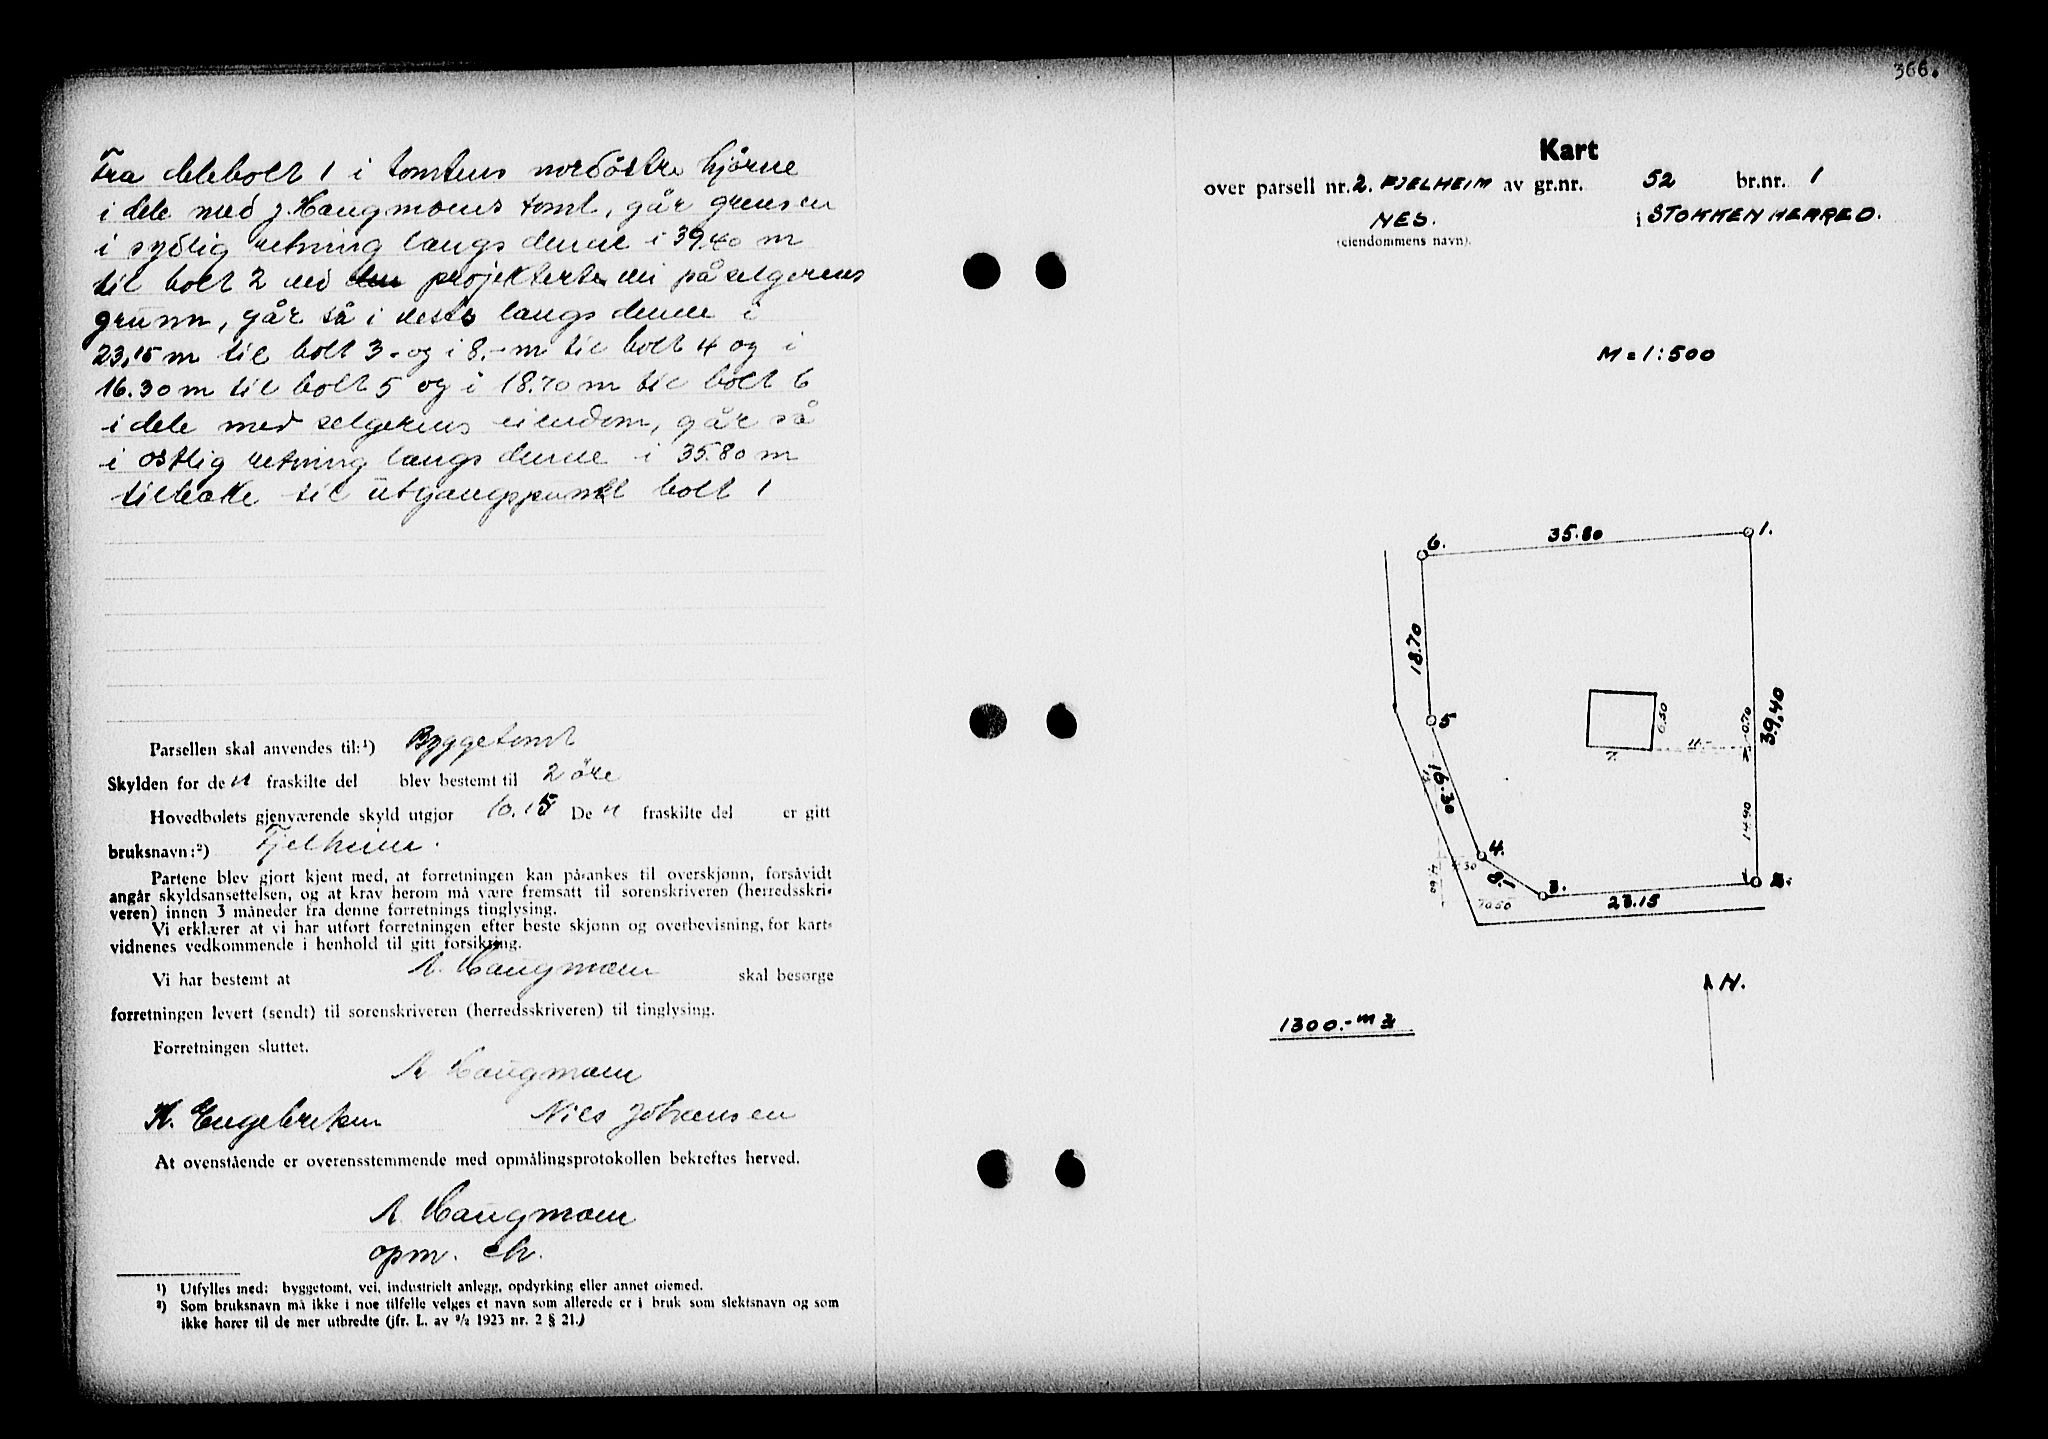 Fra delebolt 1 i tomtens nordöstre hjörne
i dele med J. Haugmoens tomt, går grensen
i sydlig retning langs denne i 39.40 m
til bolt 2 ved den projekterte vei på selgerens
grunn, går så i vest langs denne i
23,15 m til bolt 3 - og i 8.- m til bolt 4 og i
16.30 m til bolt 5 og i 18.70 m til bolt 6
i dele med selgerens eiendom, går så
i østlig retning langs denne i 35.80 m
tilbake til utgangspunkt bolt 1
Parsellen skal anvendes til:¹) Byggetomt
Skylden for den fraskilte del blev bestemt til 2 öre
Hovedbølets gjenværende skyld utgjør 10.15 Den fraskilte del er gitt
bruksnavn:²) Fjelheim.
Partene blev gjort kjent med, at forretningen kan påankes til overskjønn, forsåvidt
angår skyldsansettelsen, og at krav herom må være fremsatt til sorenskriveren (herredsskri-
veren) innen 3 måneder fra denne forretnings tinglysing.
Vi erklærer at vi har utført forretningen efter beste skjønn og overbevisning, for kart-
vidnenes vedkommende i henhold til gitt forsikring.
Vi har bestemt at A. Haugmoen skal besørge
forretningen levert (sendt) til sorenskriveren (herredsskriveren) til tinglysing.
Forretningen sluttet.
A Haugmoen
Nils Johansen
At ovenstående er overensstemmende med opmålingsprotokollen bekreftes herved.
A. Haugmoen
opm. ch.
¹) Utfylles med: byggetomt, vei, industrielt anlegg, opdyrking eller annet øiemed.
²) Som bruksnavn må ikke i noe tilfelle velges et navn som allerede er i bruk som slektsnavn og som
ikke hører til de mer utbredte (jfr. L. av ⁹/₂ 1923 nr. 2 § 21.)
366.
Kart
over parsell nr. 2. FJELHEIM av gr.nr. 52 br.nr. 1
NES. i STOKKEN HERRED.
(eiendommens navn).
M = 1:500
6. 35.80 1.
18.70
5
6.50
0.70
39.40
7. 11.-
16.30
14.90
4.
8.-
3. 2.
10.50 23.15
N.
1300.- m2